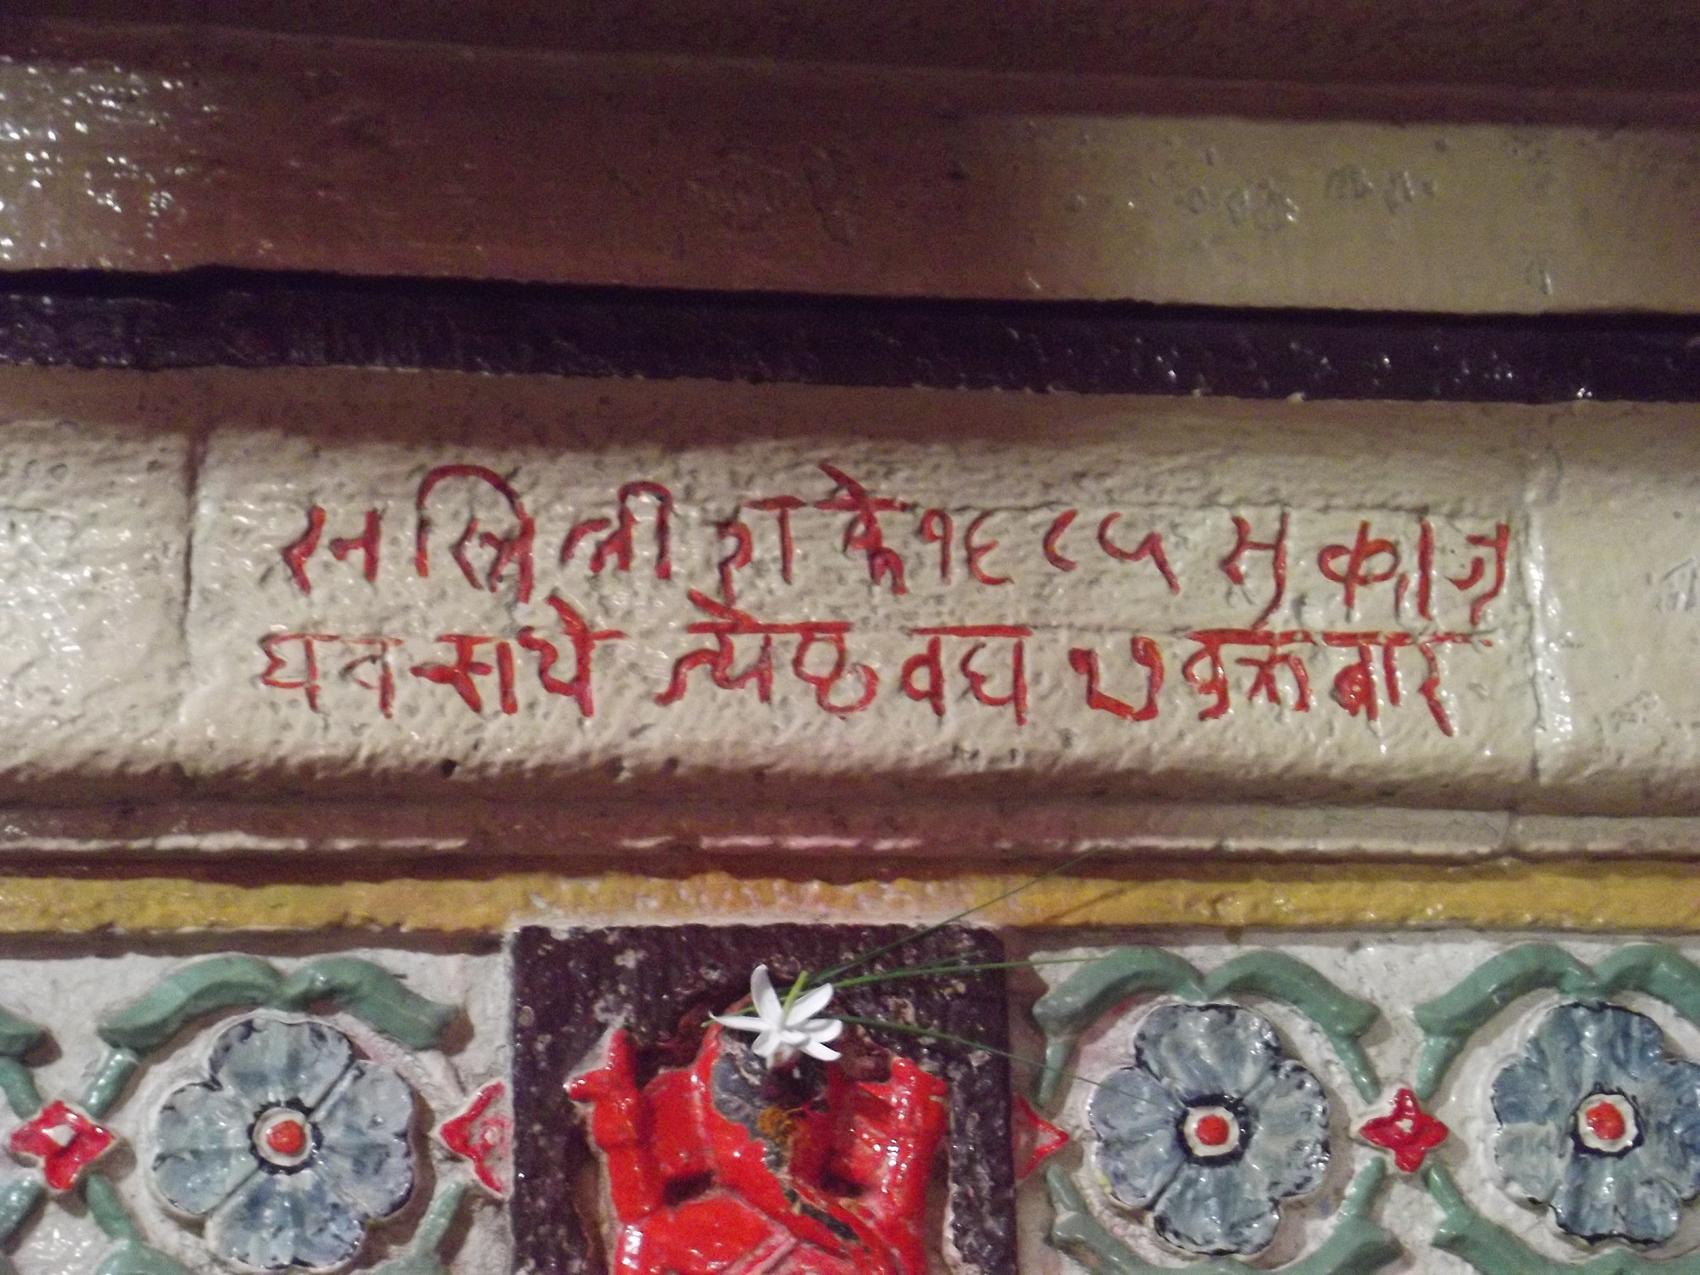 स्वस्ति श्री शके १६८५ सुका ज्
घव साथे ज्येष्ठ वद्य १७ वुक्र बार